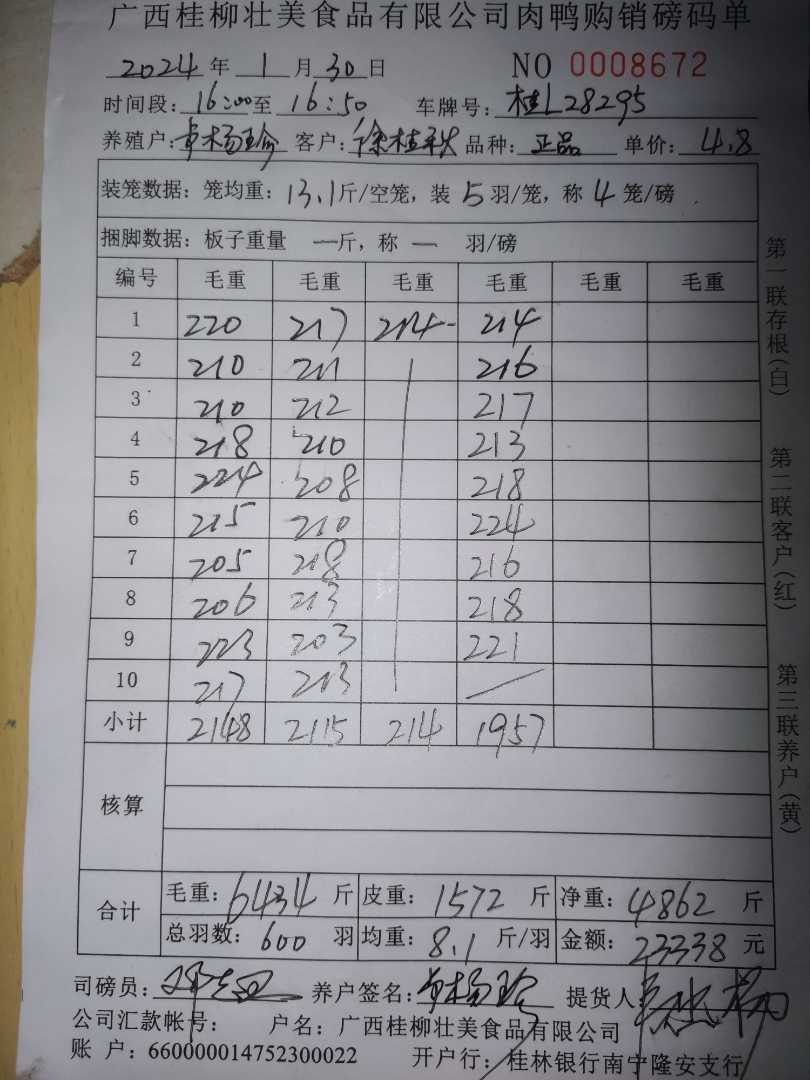 广西桂柳壮美食品有限公司肉鸭购销磅码单
2024 年 1 月 30 日 NO 0008672
时间段: 16:00 至 16:50 车牌号: 桂L28295
养殖户: 客户: 徐桂秋 品种: 正品 单价: 4.8
装笼数据: 笼均重: 13.1斤/空笼, 装 5 羽/笼, 称 4 笼/磅
捆脚数据: 板子重量 一斤, 称 一 羽/磅
编号 毛重 毛重 毛重 毛重 毛重 毛重
1 220 217 214 214
2 210 211 216
3 210 212 217
4 218 210 213
5 224 208 218
6 215 210 224
7 205 218 216
8 206 213 218
9 223 203 221
10 217 213
小计 2148 2115 214 1957
核算
合计
毛重: 6434 斤 皮重: 1572 斤 净重: 4862 斤
总羽数: 600 羽 均重: 8.1 斤/羽 金额: 23338 元
司磅员: 养户签名: 提货人
公司汇款帐号: 户名: 广西桂柳壮美食品有限公司
账 户: 660000014752300022 开户行: 桂林银行南宁隆安支行
第一联存根(白) 第二联客户(红) 第三联养户(黄)